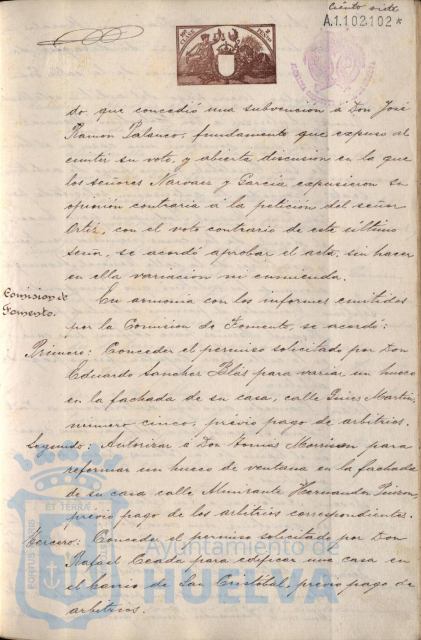 ciento siete
A.1.102.102*
do que concedió una subvención á Don José
Ramon Palanco, fundamento que expuso al
emitir su voto, y abierta discusion en la que
los señores Narvaez y Garcia expusieron su
opinión contraria á la petición del señor
Ortiz, con el voto contrario de este último
señor, se acordó aprobar el acta, sin hacer
en ella variacion ni enmienda.
Comision de
Fomento.
En armonia con los informes emitidos
por la Comision de Fomento, se acordó:
Primero: Conceder el permiso solicitado por Don
Eduardo Sanchez Blás para variar un hueco
en la fachada de su casa, calle Martin,
número cinco, previo pago de arbitrios.
Segundo: Autorizar á Don Tomás Morrison para
reformar un hueco de ventana en la fachada
de su casa calle Almirante Hernandez Pinzon,
previo pago de los arbitrios correspondientes.
Tercero: Conceder el permiso solicitado por Don
Rafael Ceada para edificar una casa en
el barrio de San Cristóbal, previo pago de
arbitrios.
Ayuntamiento de
HUELVA